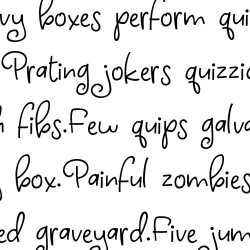 vy boxes perform qui
Prating jokers quizzic
h fibs.Few quips galva
y box.Painful zombies
ed graveyard.Five jum